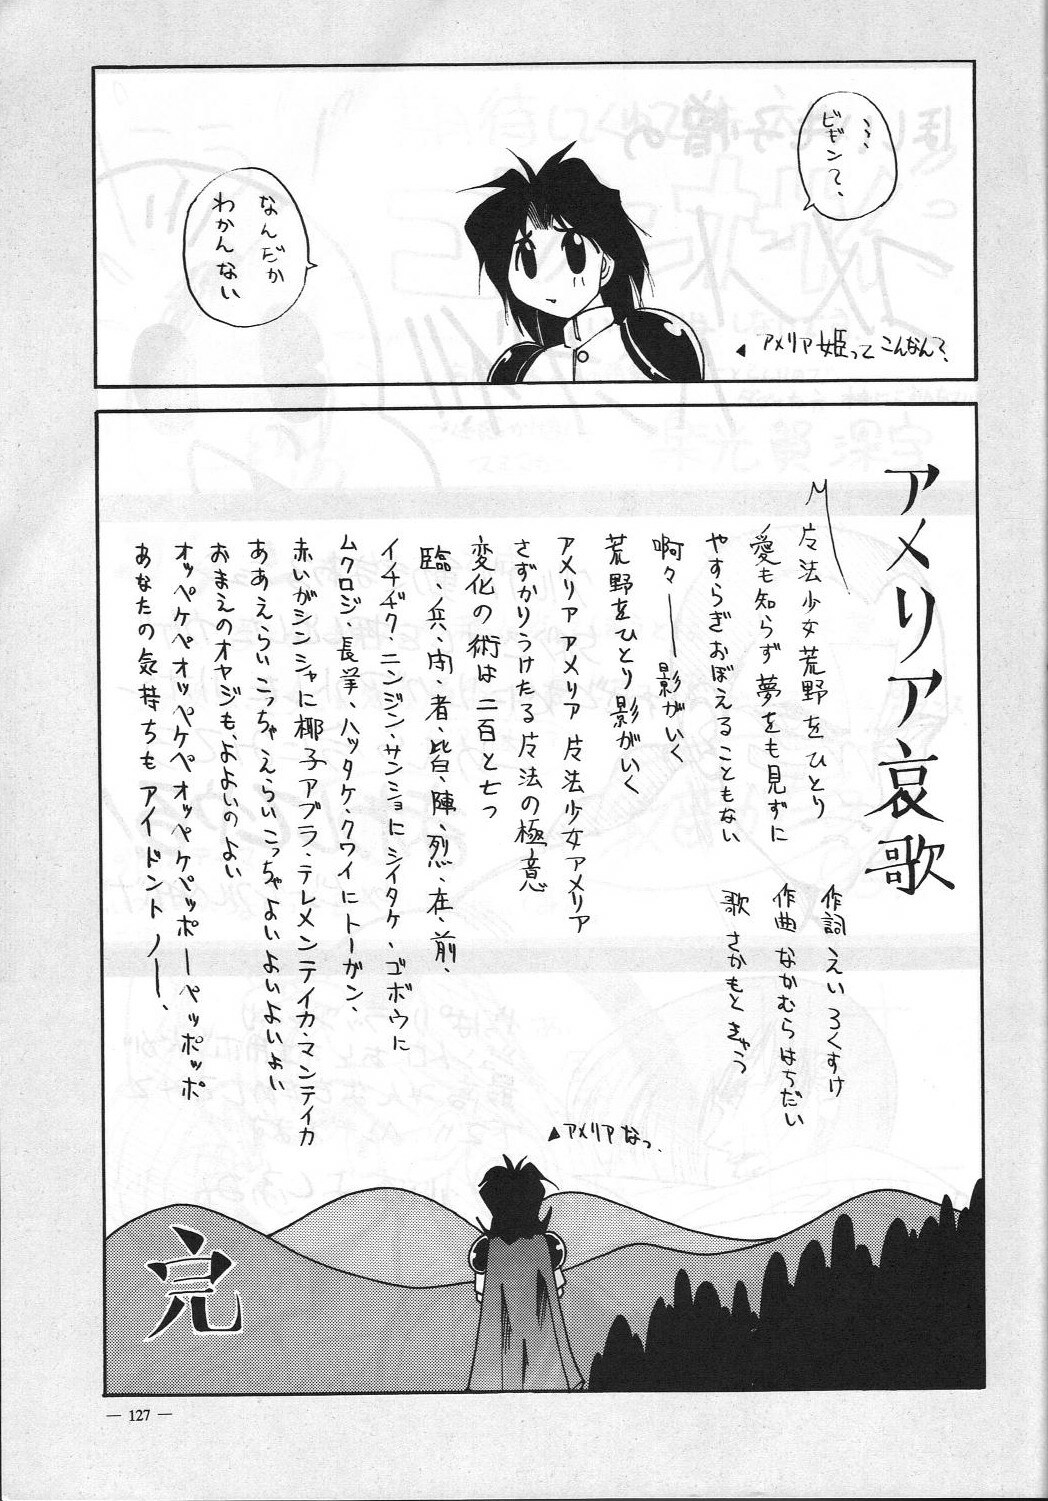 …
ビギンて、
なんだか
わかんない
▲アメリア姫ってこんなん？
アメリア哀歌
作詞 えいろくすけ
作曲 なかむらはちだい
歌 さかもときゅう
片法少女荒野をひとり
愛も知らず夢をも見ずに
やすらぎおぼえることもない
啊々―― 影がいく
荒野をひとり影がいく
アメリア アメリア 片法少女アメリア
さずかりうけたる片法の極意
変化の術は二百と七つ
臨、兵、闘、者、皆、陣、烈、在、前、
イチヂク・ニンジン・サンショにシイタケ・ゴボウに
ムクロジ、長芋、ハッタケ、クワイにトーガン、
赤いがシンシャに椰子アブラ・テレメンテイカ・マンテイカ
ああえらいこっちゃえらいこっちゃよいよいよいよい
おまえのオヤジも、よよいのよい
オッペケペオッペケペオッペケペッポーペッポッポ
あなたの気持ちもアイドントノー、
▲アメリアなっ、
完
― 127 ―